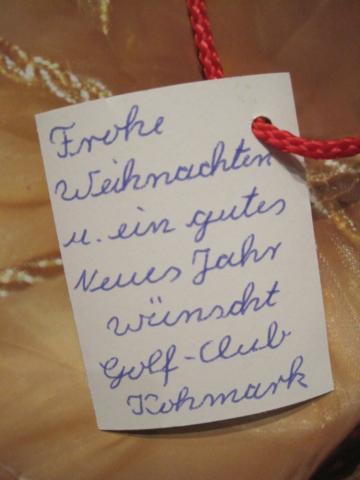 Frohe
Weihnachten
u. ein gutes
Neues Jahr
wünscht
Golf-Club
Kohmark